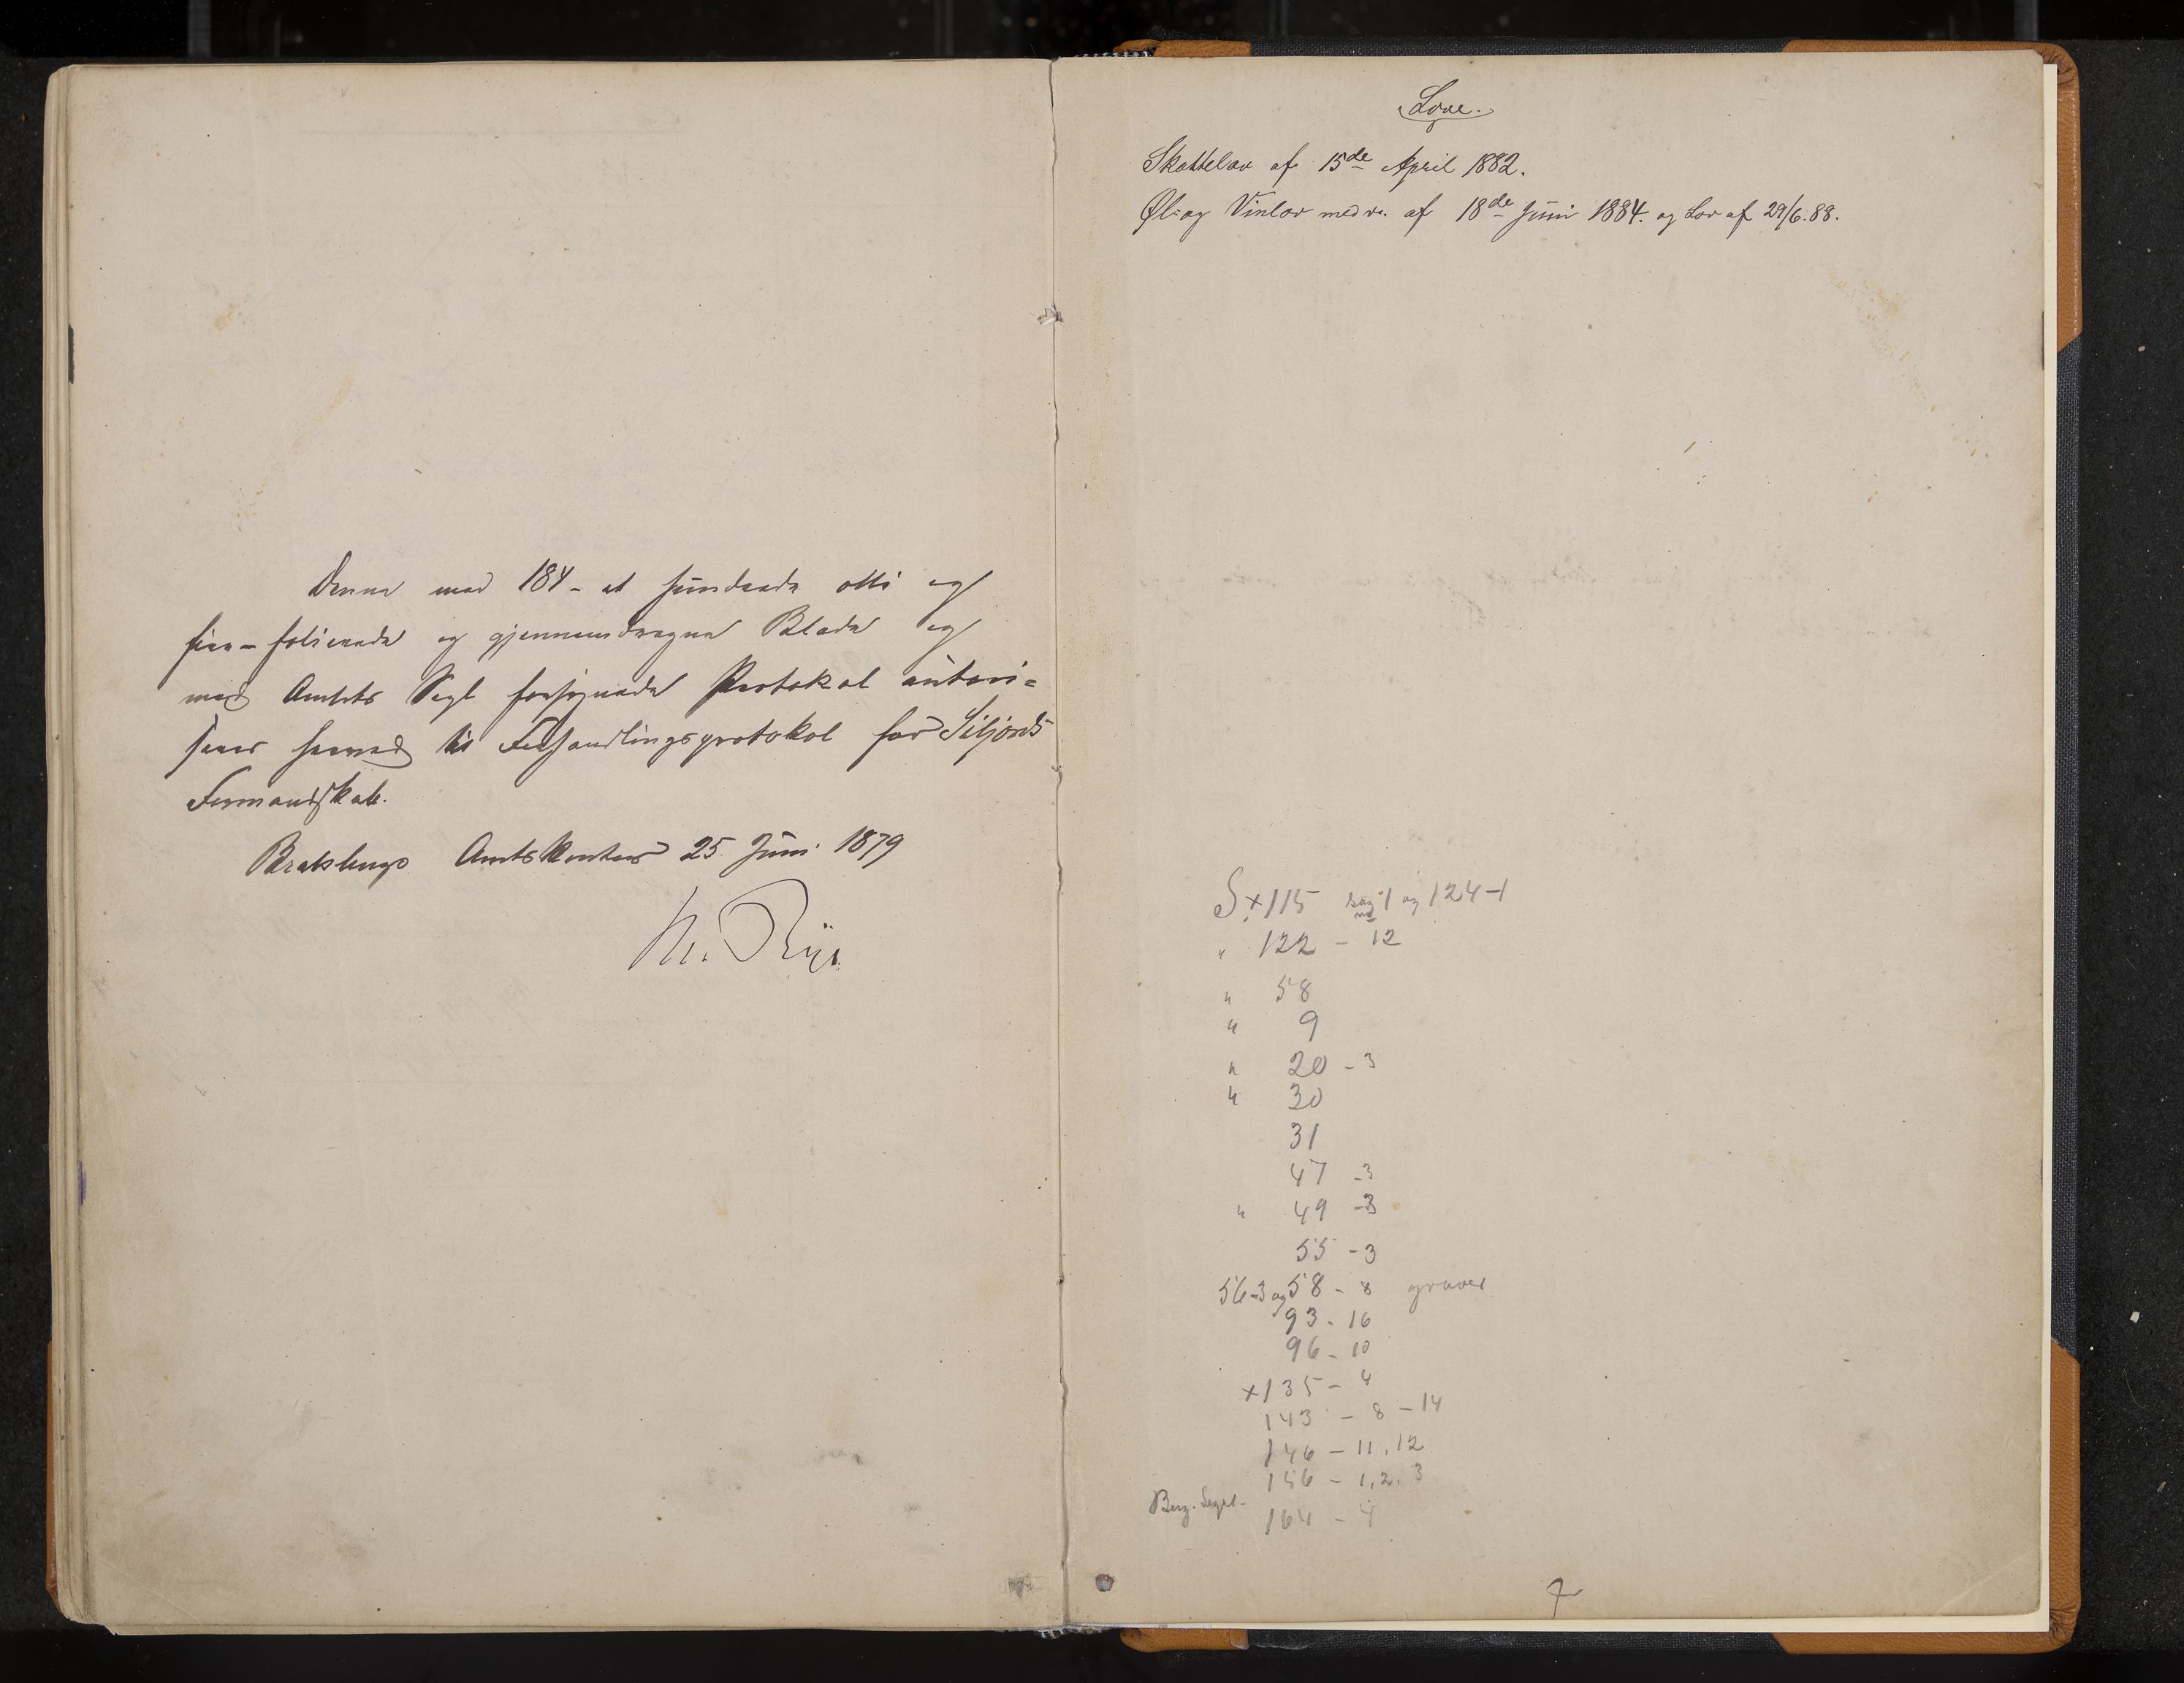 Denne med 184 - et hundrede otti og
fire - folierede og gjennemdragne Blade og
med Amtets Segl forsynede Protokol autori=
seres herved til Forhandlingsprotokol for Siljords
Formandskab.
Bratsbergs Amtskontor 25 Juni 1879
H. Rye
Love.
Skattelov af 15de April 1882.
Øl- og Vinlov m.v. af 18de Juni 1884. og Lov af 29/6.88.
S. x 115 sag 1 og 124-1
" 122 - 12
" 58
" 9
" 20 - 3
" 30
31
47 - 3
" 49 - 3
55 - 3
56-3 og 58 - 8 graver
93 - 16
96 - 10
x 135 - 4
143 - 8 - 14
146 - 11, 12
156 - 1, 2, 3
164 - 4